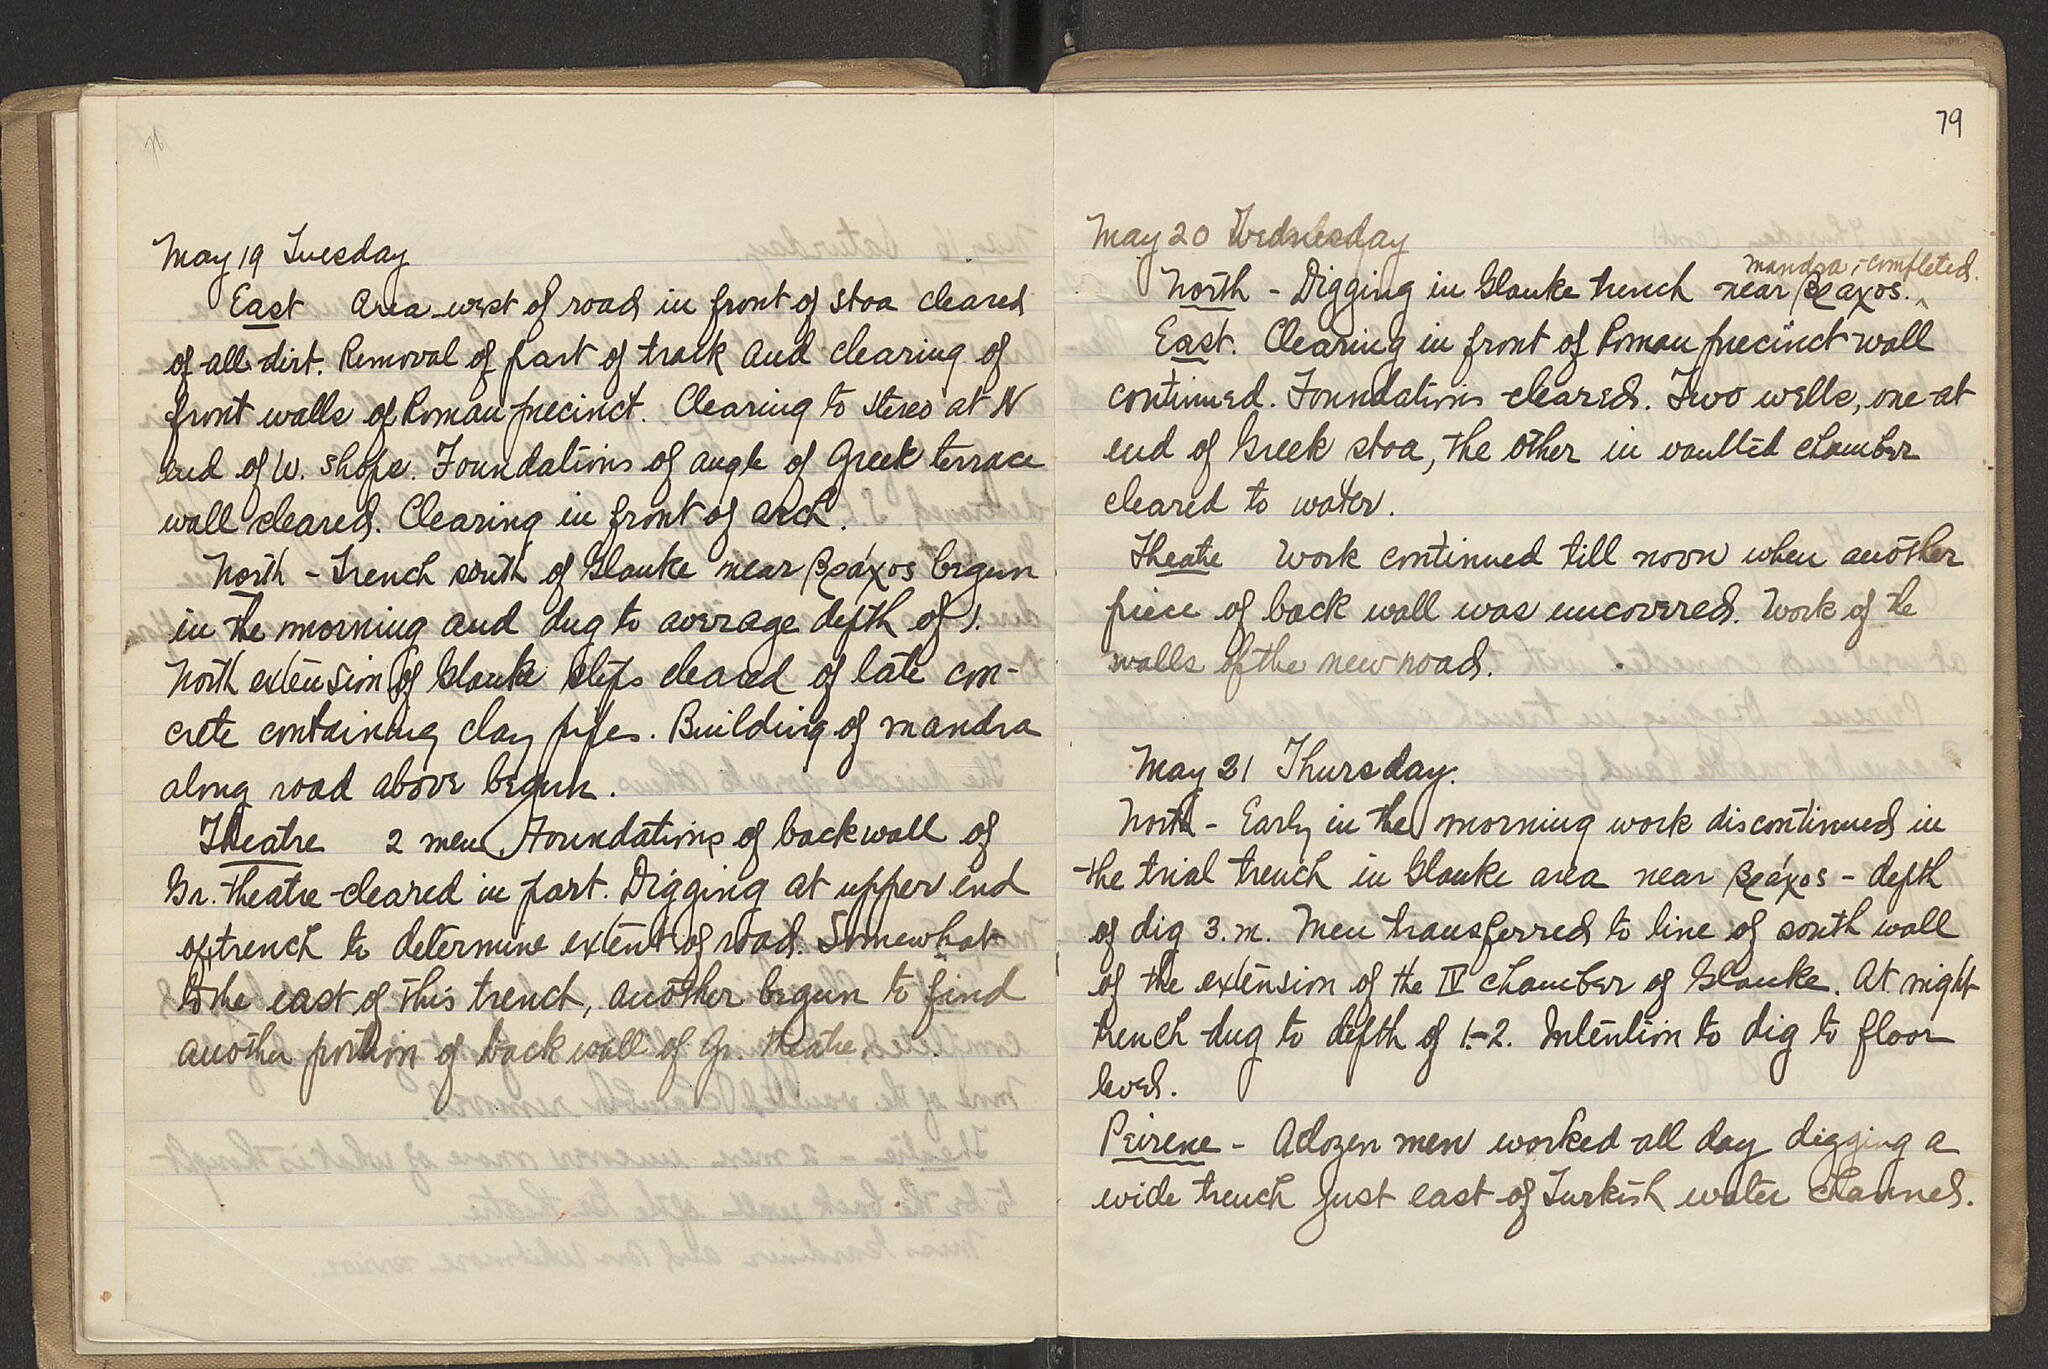 May 19 Tuesday
East Area west of road in front of stoa cleared
of all dirt. Removal of part of track and clearing of
front walls of Roman precinct. Clearing to stereo at N
end of W. shops. Foundations of angle of Greek terrace
wall cleared. Clearing in front of arch.
North - Trench south of Glauke near βράχος begun
in the morning and dug to average depth of 1.
North extension of Glauke steps cleared of late con-
crete containing clay pipes. Building of mandra
along road above begun.
Theatre 2 men. Foundations of back wall of
Gr. theatre cleared in part. Digging at upper end
of trench to determine extent of road. Somewhat
to the east of this trench, another begun to find
another portion of back wall of Gr. theatre.
79
May 20 Wednesday
mandra, completed.
North - Digging in Glauke trench near βράχος.
East. Clearing in front of Roman precinct wall
continued. Foundations cleared. Two wells, one at
end of Greek stoa, the other in vaulted chamber
cleared to water.
Theatre Work continued till noon when another
piece of back wall was uncovered. Work of the
walls of the new road.
May 21 Thursday.
North - Early in the morning work discontinued in
the trial trench in Glauke area near βράχος - depth
of dig 3. m. Men transferred to line of south wall
of the extension of the IV chamber of Glauke. At night
trench dug to depth of 1.-2. Intention to dig to floor
level.
Peirene - A dozen men worked all day digging a
wide trench just east of Turkish water channel.